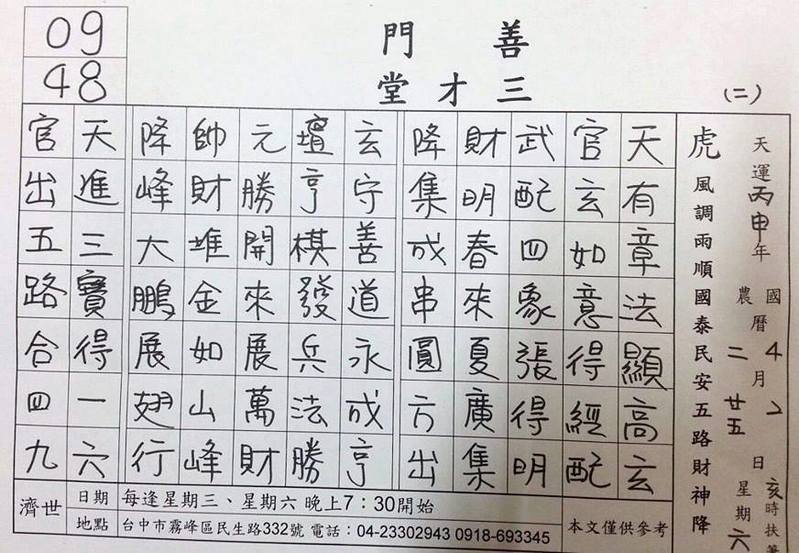 善門
三才堂
(二)
天運丙申年 國曆 4月2日 亥時扶筆
農曆 二 廿五 星期六
虎 風調雨順國泰民安五路財神降
天有章法顯高玄
官玄如意得經配
武配四象張得明
財明春來夏廣集
降集成串圓方出
玄守善道永成亨
壇亨棋發兵法勝
元勝開來展萬財
帥財堆金如山峰
降峰大鵬展翅行
09
48
天進三寶得一六
官出五路合四九
濟世
日期 每逢星期三、星期六 晚上7：30開始
地點 台中市霧峰區民生路332號 電話：04-23302943 0918-693345
本文僅供參考